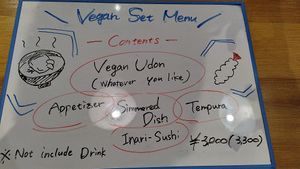 Vegan Set Menu
— Contents —
Vegan Udon
(Whatever you like)
Appetizer Simmered Dish Tempura
Inari-Sushi ¥3,000 (3,300)
※ Not include Drink